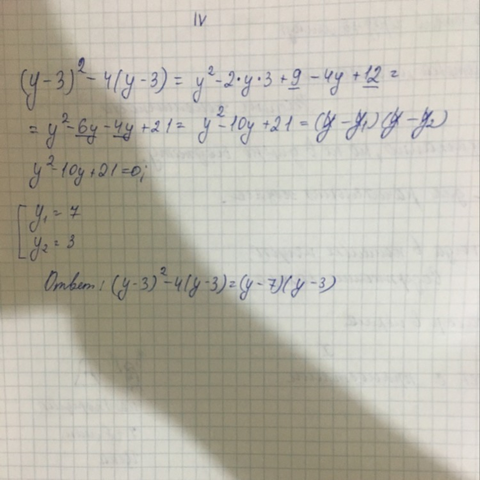 IV
(y-3)²-4(y-3) = y²-2·y·3+9-4y+12=
= y²-6y-4y+21 = y²-10y+21 = (y-y₁)(y-y₂)
y²-10y+21=0;
[y₁ = 7
y₂ = 3
Ответ: (y-3)²-4(y-3)=(y-7)(y-3)